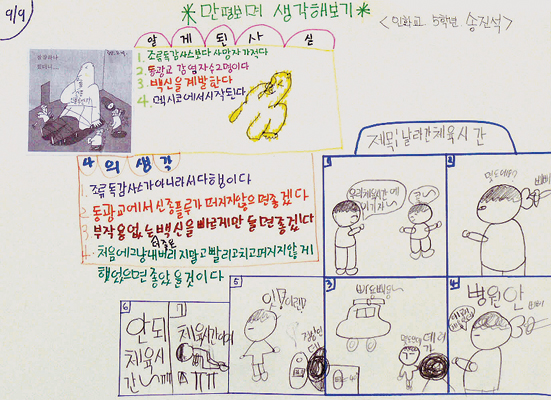 9/9
*만평보며 생각해보기*
<민화교 5학년 송진석>
알게된사실
1. 조류독감사스보다 사망자가적다
2. 동광교 감염자수2명이다
3. 백신을계발한다
4. 멕시코에서시작된다
나의생각
1. 조류독감사스가아니라서다행이다
2. 동광교에서신종플루가 퍼저지않으면좋겠다
3. 부작용없는백신을빠르게만들면좋겠다
4. 처음에그냥내버리지말고빨리고치고퍼저지않게
했었으면좋았을것이다
제목:날라간체육시간
1
우리체육시간 에
이기자
2
3
삐용삐용~
데려
가
4
병원안
5
6
안되
체육시
간~
7
체육시간이여